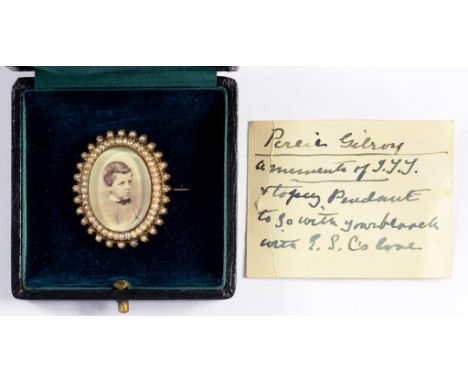 Percie Gilroy
a memento of J.Y.J.
& topaz Pendant
to go with your brooch
with E. S. C's love